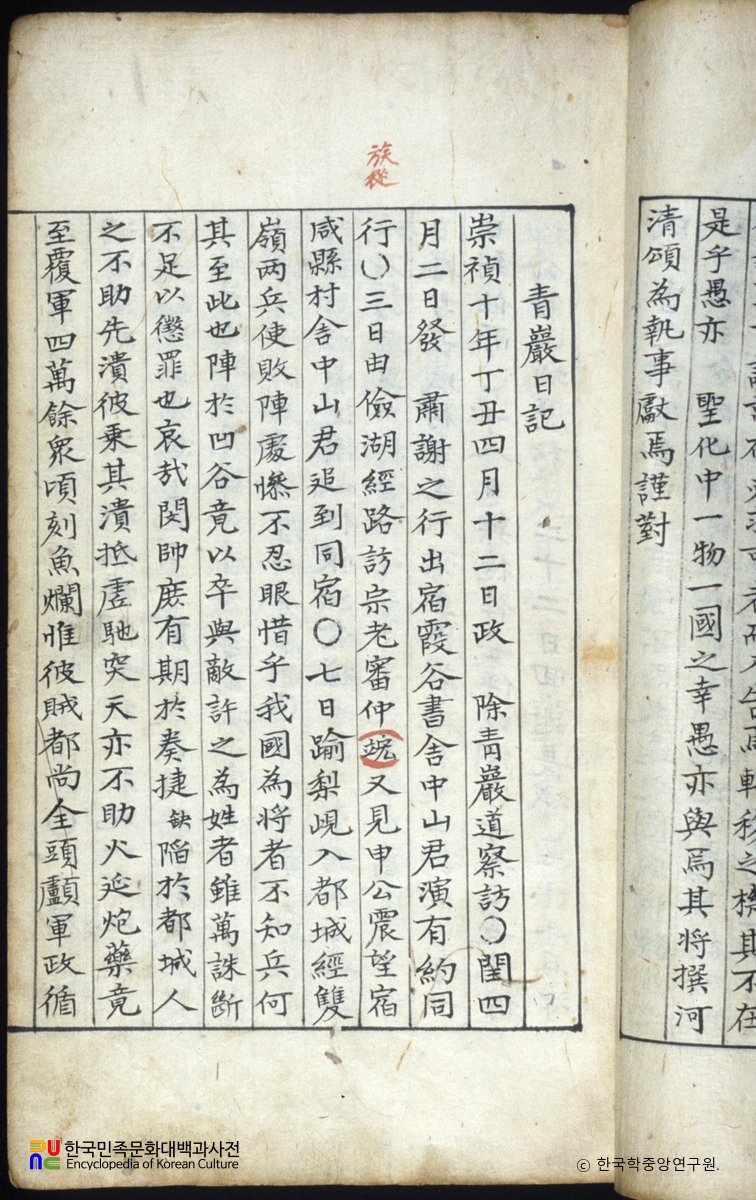 是乎愚亦　聖化中一物一國之幸愚亦與焉其將撰河
清頌為執事獻焉謹對
族從
青巖日記
崇禎十年丁丑四月十二日政　除青巖道察訪○閏四
月二日發　肅謝之行出宿霞谷書舍中山君演有約同
行○三日由儉湖經路訪宗老審仲又見申公震望宿
咸縣村舍中山君追到同宿○七日踰梨峴入都城經雙
嶺兩兵使敗陣處慘不忍眼惜乎我國為將者不知兵何
其至此也陣於凹谷竟以卒與敵許之為姓者雖萬誅斷
不足以懲罪也哀哉閔帥庶有期於奏捷缺陷於都城人
之不助先潰彼乘其潰抵虛馳突天亦不助火延炮藥竟
至覆軍四萬餘衆頃刻魚爛惟彼賊都尚全頭顱軍政循
한국민족문화대백과사전
Encyclopedia of Korean Culture
ⓒ 한국학중앙연구원.